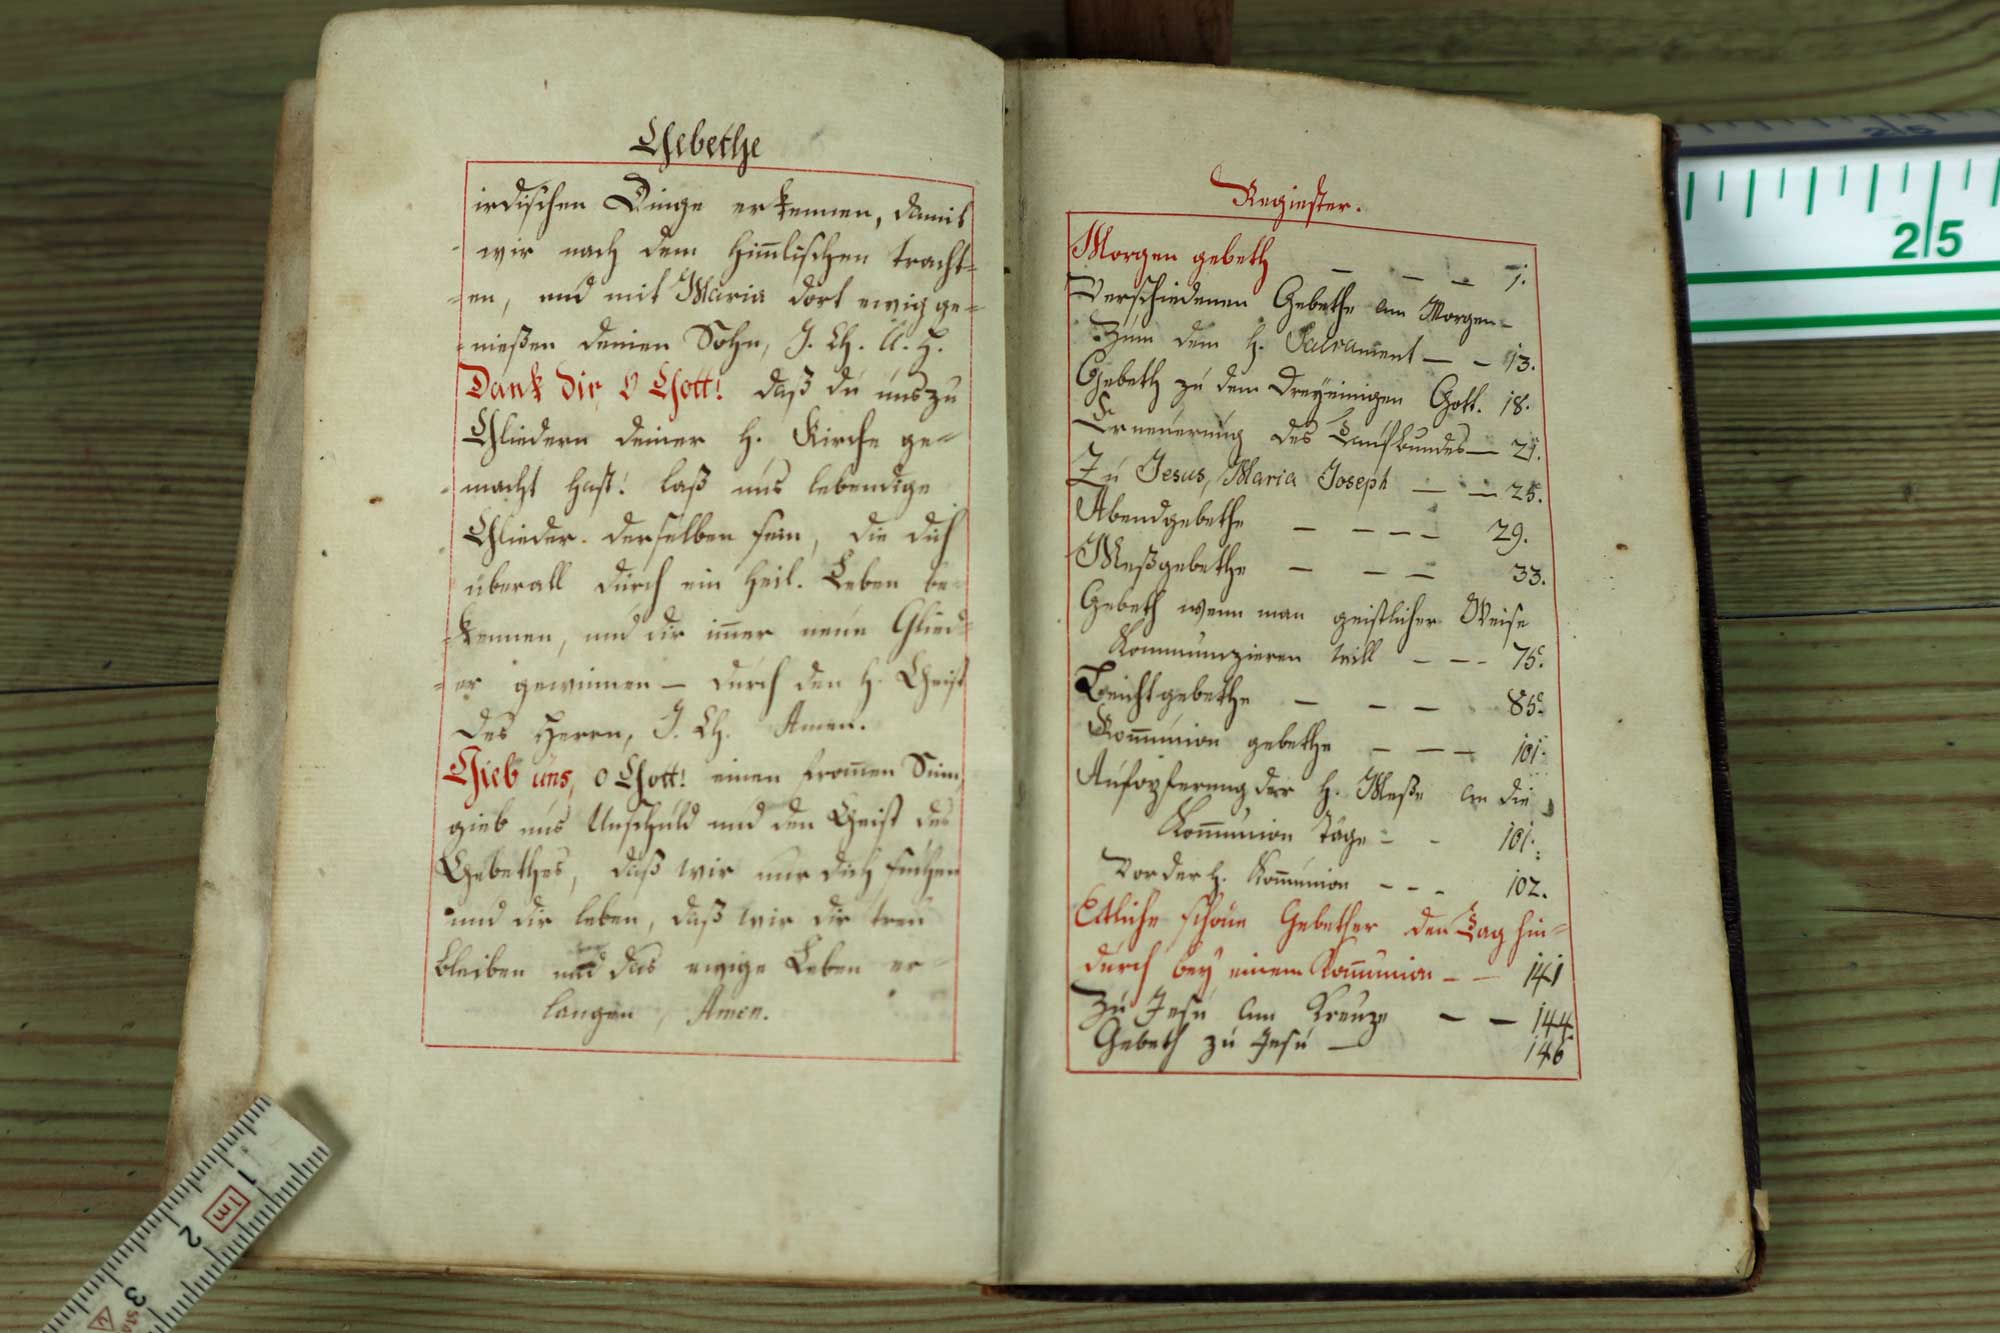 Gebethe
irdischen Dinge erkennen, damit
wir nach dem Him̅lischen tracht=
=en, und mit Maria dort ewig ge=
=nießen deinen Sohn, J. Ch. U. H.
Dank dir, O Gott! daß du uns zu
Gliedern deiner H. Kirche ge=
=macht hast! laß uns lebendige
Glieder derselben sein, die dich
überall durch ein heil. Leben be=
=kennen, und dir im̅er neue Glied=
=er gewinnen — durch den H. Geist
des Herrn, J. Ch. Amen.
Gieb uns, o Gott! einen from̅en Sinn,
gieb uns Unschuld und den Geist des
Gebethes, daß wir nur dich suchen
und dir leben, daß wir dir treu
bleiben und das ewige Leben er=
langen, Amen.
Regiester.
Morgen gebeth — — — 1.
Verschiedenen Gebethe am Morgen —
Zum dem H. Sacrament — — 13.
Gebeth zu dem Dreyeinigen Gott. 18.
Erneuerung des Taufbundes — 21.
Zu Jesus, Maria Joseph — — 25.
Abendgebethe — — — — 29.
Meßgebethe — — — 33.
Gebeth wenn man geistlicher Weise
Kommunzieren will — — — 75.
Beichtgebethe — — — 85.
Kom̅union gebethe — — — 101.
Aufopferung der H. Meße an die
Kom̅union Tage — — 101.
Vor der H. Kom̅union — — — 102.
Ettliche schöne Gebether den Tag hin=
durch bey einem Kom̅union — — 141
Zu Jesu am Kreuze — — 144.
Gebeth zu Jesu — 146
25
25
1
1m
2
3